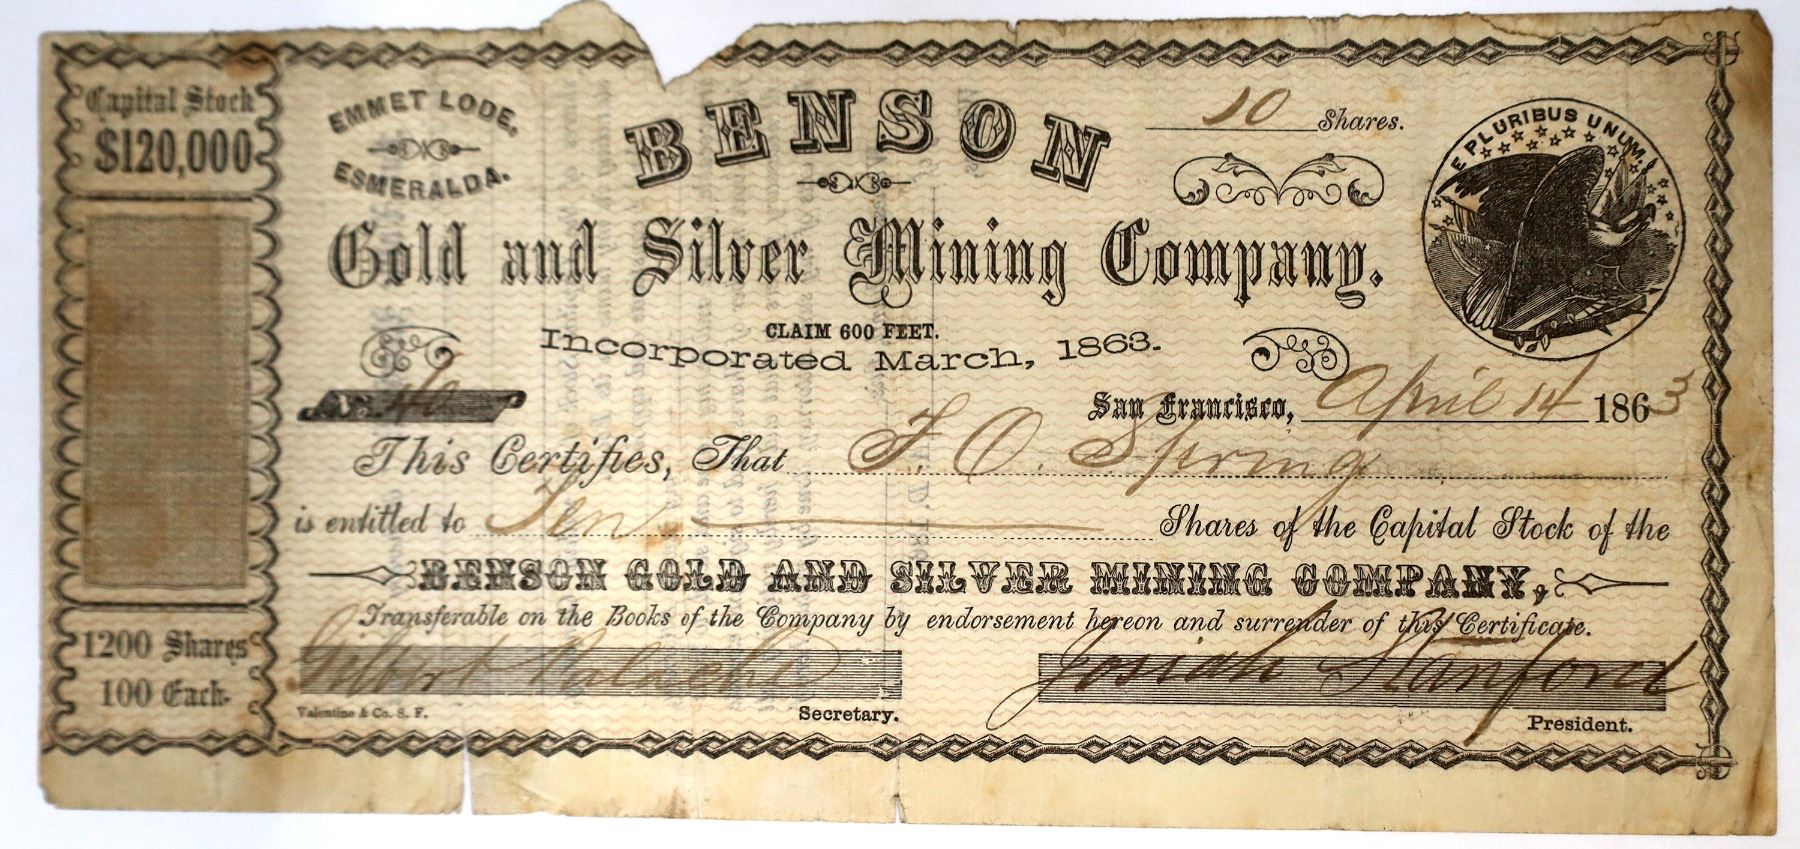 Capital Stock
$120,000
EMMET LODE,
ESMERALDA.
BENSON
10 Shares.
E PLURIBUS UNUM.
Gold and Silver Mining Company.
CLAIM 600 FEET.
Incorporated March, 1863.
No.
San Francisco, April 14 1863
This Certifies, That F. O. Spring
is entitled to Ten Shares of the Capital Stock of the
BENSON GOLD AND SILVER MINING COMPANY,
Transferable on the Books of the Company by endorsement hereon and surrender of this Certificate.
1200 Shares
100 Each
Gilbert Palache
Josiah Stanford
Valentine & Co. S. F.
Secretary.
President.